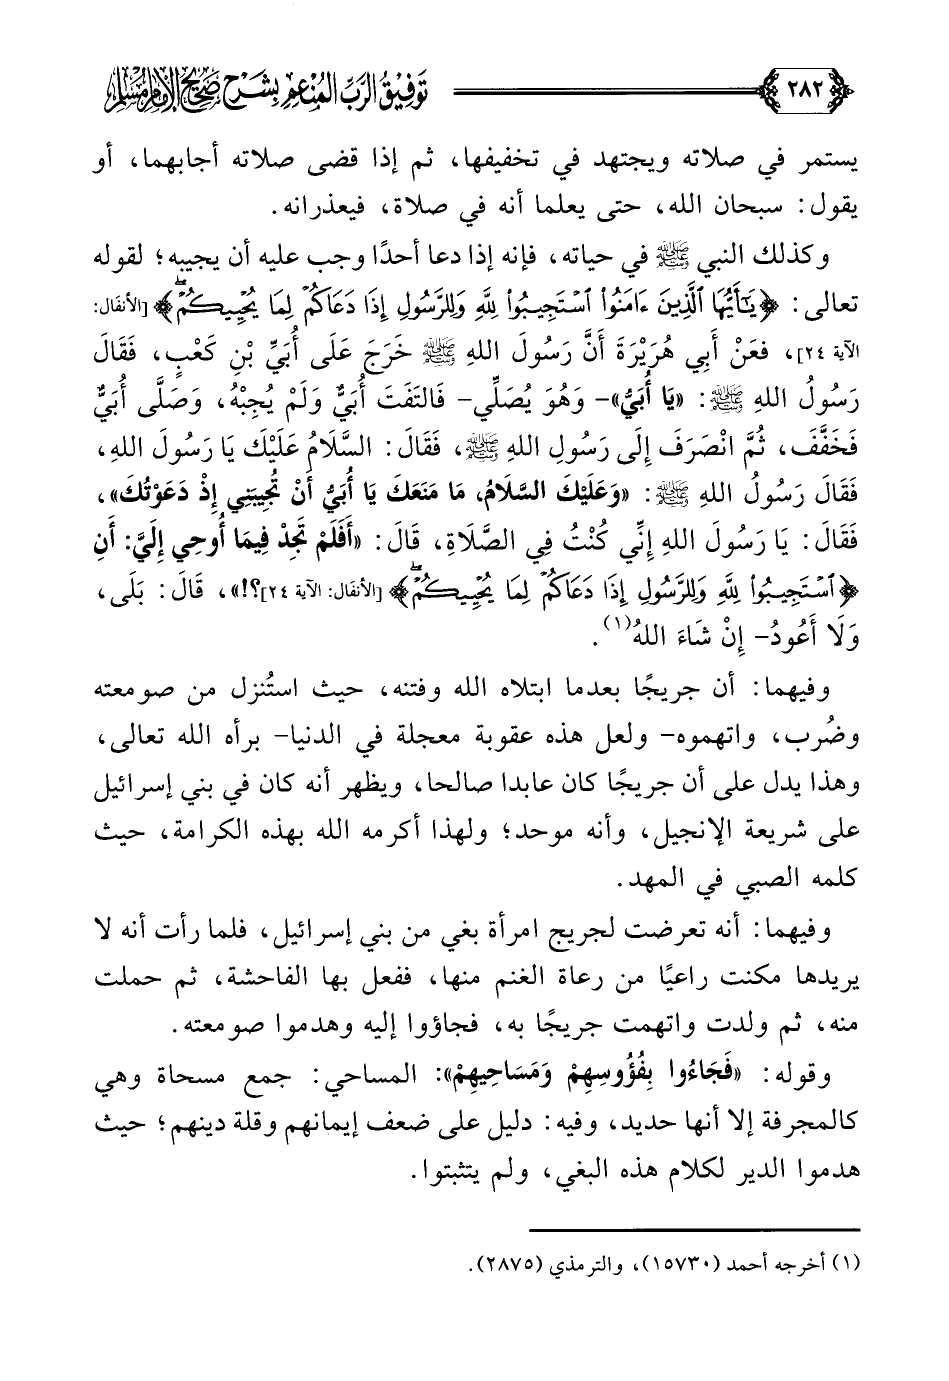 ٢٨٢ توفيق الرب المنعم بشرح صحيح الإمام مسلم
يستمر في صلاته ويجتهد في تخفيفها، ثم إذا قضى صلاته أجابهما، أو
يقول: سبحان الله، حتى يعلما أنه في صلاة، فيعذرانه.
وكذلك النبي ﷺ في حياته، فإنه إذا دعا أحدًا وجب عليه أن يجيبه؛ لقوله
تعالى: ﴿يَٰٓأَيُّهَا ٱلَّذِينَ ءَامَنُوا۟ ٱسْتَجِيبُوا۟ لِلَّهِ وَلِلرَّسُولِ إِذَا دَعَاكُمْ لِمَا يُحْيِيكُمْۖ﴾ [الأنفال:
الآية ٢٤]، فعَنْ أَبِي هُرَيْرَةَ أَنَّ رَسُولَ اللهِ ﷺ خَرَجَ عَلَى أُبَيِّ بْنِ كَعْبٍ، فَقَالَ
رَسُولُ اللهِ ﷺ: «يَا أُبَيُّ»- وَهُوَ يُصَلِّي- فَالتَفَتَ أُبَيٌّ وَلَمْ يُجِبْهُ، وَصَلَّى أُبَيٌّ
فَخَفَّفَ، ثُمَّ انْصَرَفَ إِلَى رَسُولِ اللهِ ﷺ، فَقَالَ: السَّلَامُ عَلَيْكَ يَا رَسُولَ اللهِ،
فَقَالَ رَسُولُ اللهِ ﷺ: «وَعَلَيْكَ السَّلَامُ، مَا مَنَعَكَ يَا أُبَيُّ أَنْ تُجِيبَنِي إِذْ دَعَوْتُكَ»،
فَقَالَ: يَا رَسُولَ اللهِ إِنِّي كُنْتُ فِي الصَّلَاةِ، قَالَ: «أَفَلَمْ تَجِدْ فِيمَا أُوحِي إِلَيَّ: أَنِ
﴿ٱسْتَجِيبُوا۟ لِلَّهِ وَلِلرَّسُولِ إِذَا دَعَاكُمْ لِمَا يُحْيِيكُمْۖ﴾ [الأنفال: الآية ٢٤]؟!»، قَالَ: بَلَى،
وَلَا أَعُودُ- إِنْ شَاءَ اللهُ(١).
وفيهما: أن جريجًا بعدما ابتلاه الله وفتنه، حيث استُنزل من صومعته
وضُرب، واتهموه- ولعل هذه عقوبة معجلة في الدنيا- برأه الله تعالى،
وهذا يدل على أن جريجًا كان عابدا صالحا، ويظهر أنه كان في بني إسرائيل
على شريعة الإنجيل، وأنه موحد؛ ولهذا أكرمه الله بهذه الكرامة، حيث
كلمه الصبي في المهد.
وفيهما: أنه تعرضت لجريج امرأة بغي من بني إسرائيل، فلما رأت أنه لا
يريدها مكنت راعيًا من رعاة الغنم منها، ففعل بها الفاحشة، ثم حملت
منه، ثم ولدت واتهمت جريجًا به، فجاؤوا إليه وهدموا صومعته.
وقوله: «فَجَاءُوا بِفُؤُوسِهِمْ وَمَسَاحِيهِمْ»: المساحي: جمع مسحاة وهي
كالمجرفة إلا أنها حديد، وفيه: دليل على ضعف إيمانهم وقلة دينهم؛ حيث
هدموا الدير لكلام هذه البغي، ولم يتثبتوا.
(١) أخرجه أحمد (١٥٧٣٠)، والترمذي (٢٨٧٥).